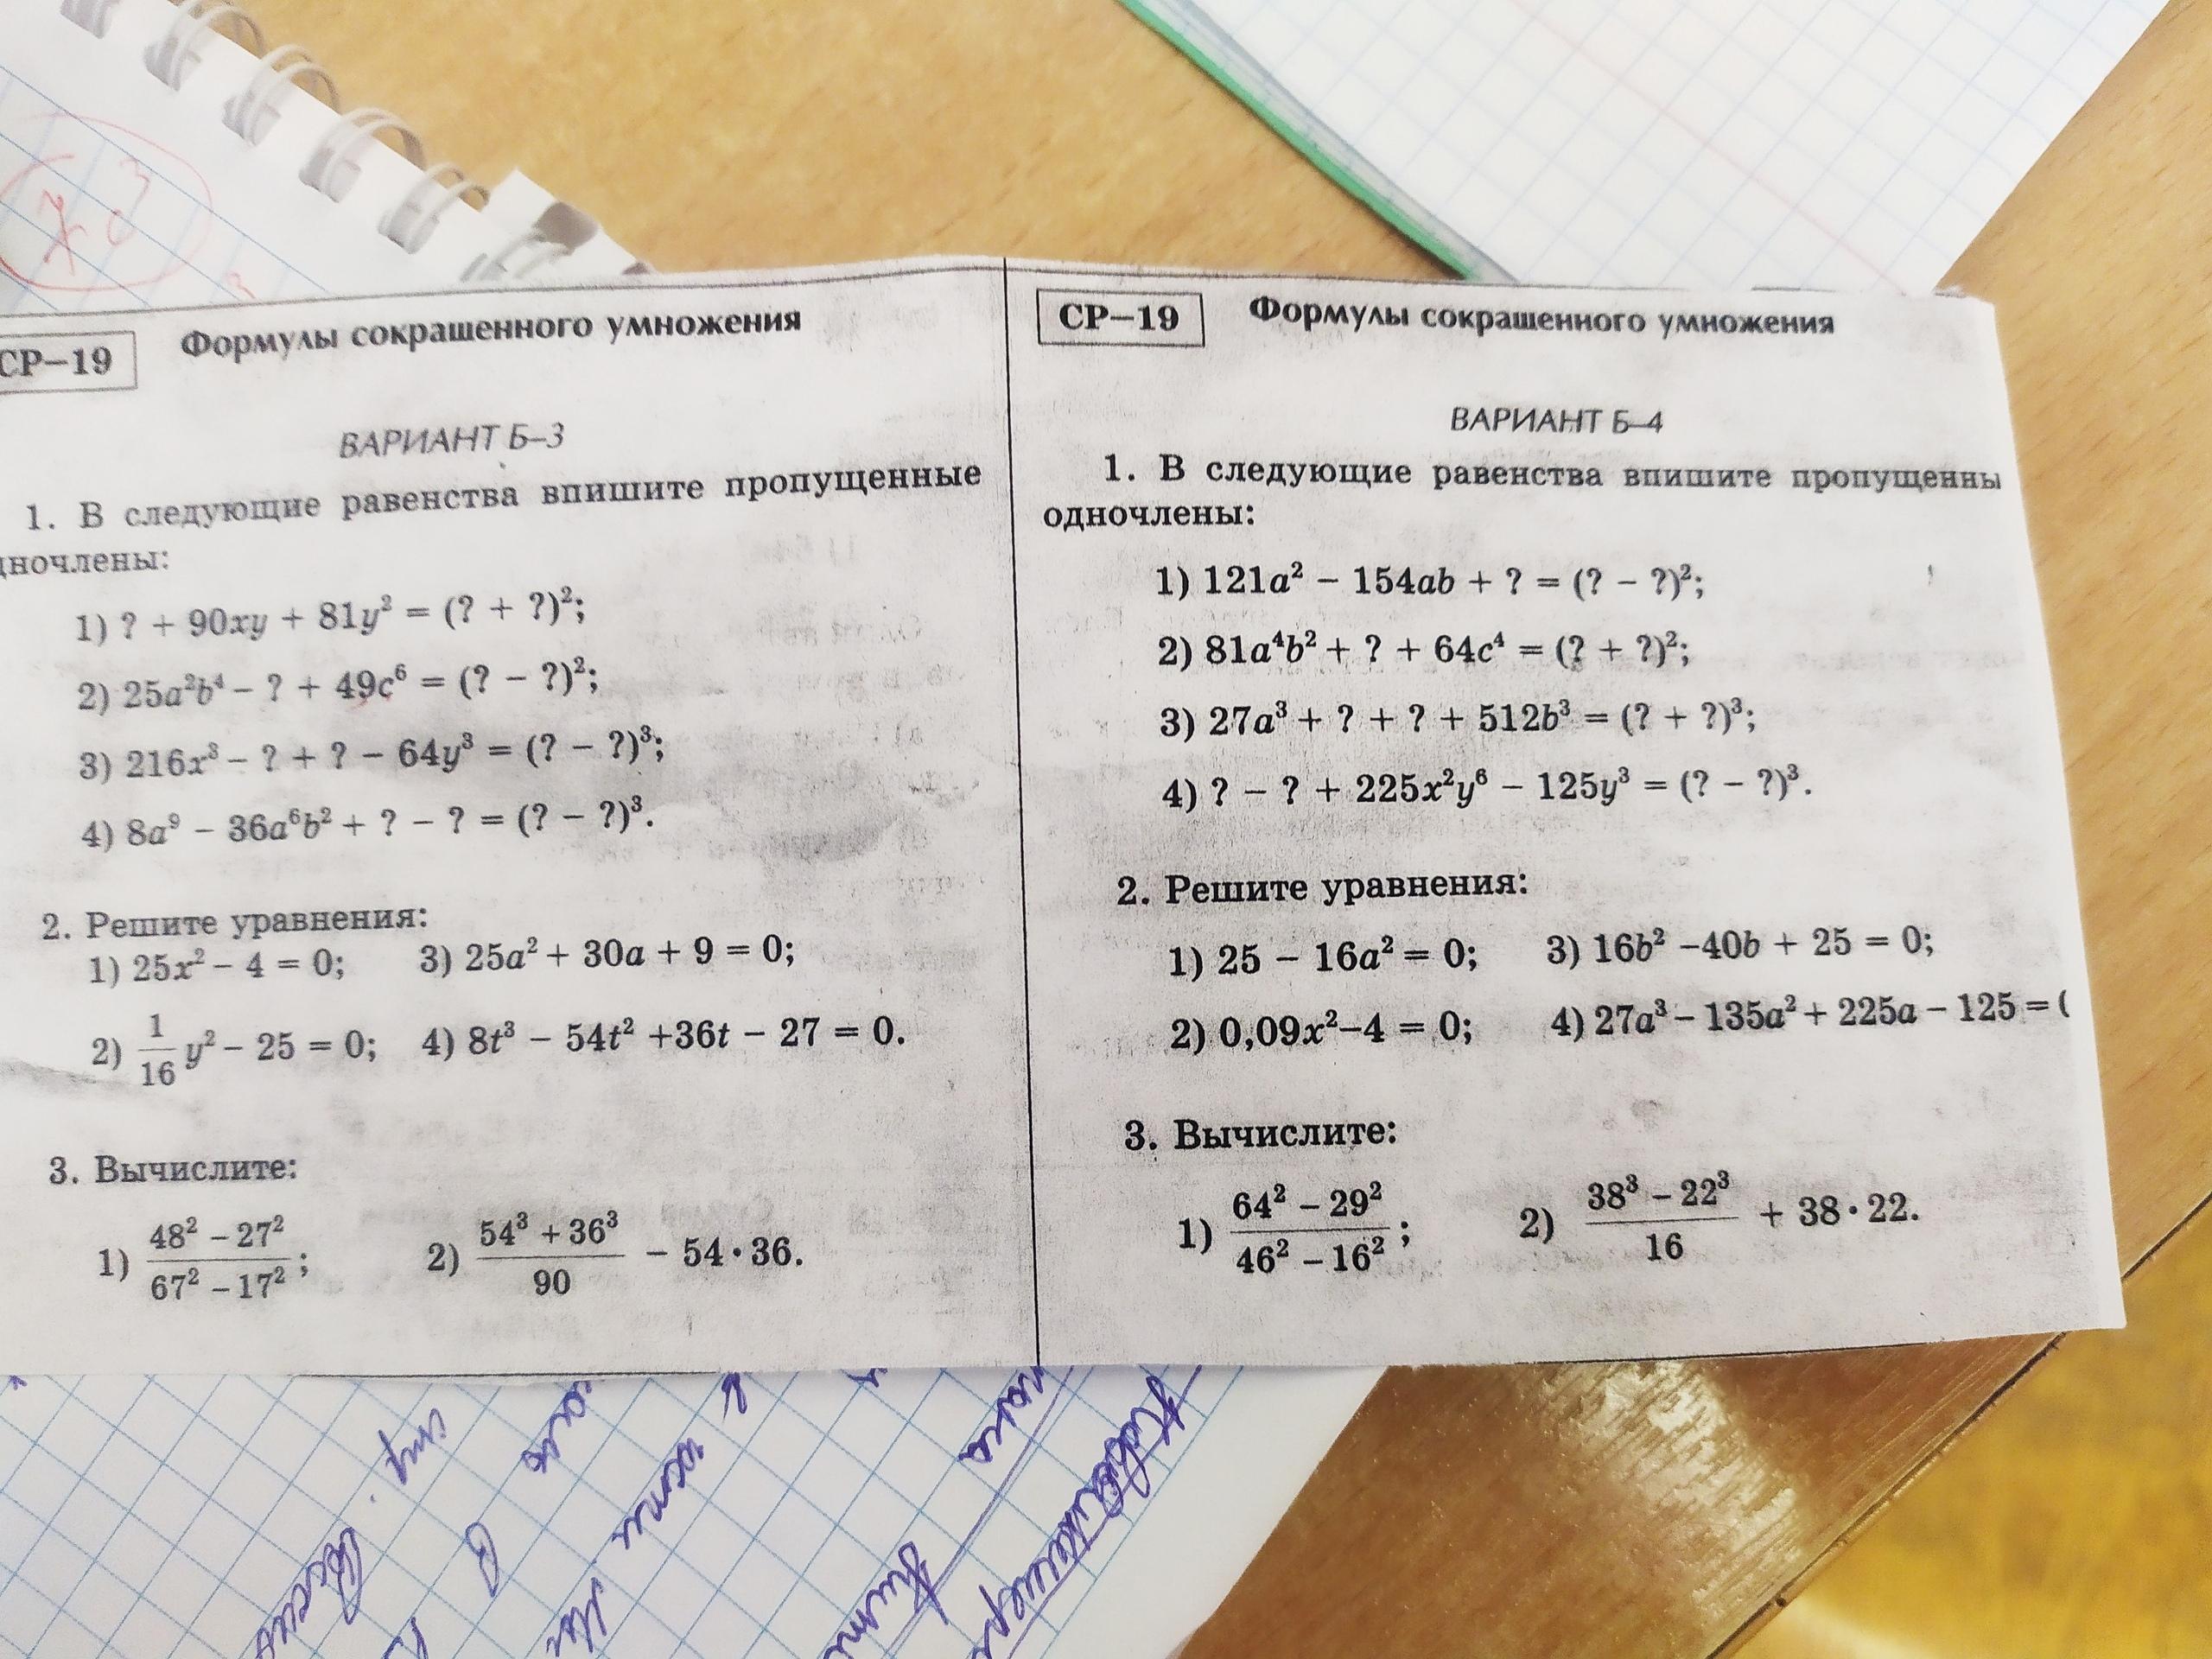 СР–19 Формулы сокрашенного умножения
ВАРИАНТ Б–3
1. В следующие равенства впишите пропущенные
дночлены:
1) ? + 90xy + 81y² = (? + ?)²;
2) 25a²b⁴ – ? + 49c⁶ = (? – ?)²;
3) 216x³ – ? + ? – 64y³ = (? – ?)³;
4) 8a⁹ – 36a⁶b² + ? – ? = (? – ?)³.
2. Решите уравнения:
1) 25x² – 4 = 0; 3) 25a² + 30a + 9 = 0;
2) 1/16 y² – 25 = 0; 4) 8t³ – 54t² +36t – 27 = 0.
3. Вычислите:
1) (48² – 27²)/(67² – 17²); 2) (54³ + 36³)/90 – 54·36.
СР–19 Формулы сокрашенного умножения
ВАРИАНТ Б–4
1. В следующие равенства впишите пропущенны
одночлены:
1) 121a² – 154ab + ? = (? – ?)²;
2) 81a⁴b² + ? + 64c⁴ = (? + ?)²;
3) 27a³ + ? + ? + 512b³ = (? + ?)³;
4) ? – ? + 225x²y⁶ – 125y³ = (? – ?)³.
2. Решите уравнения:
1) 25 – 16a² = 0; 3) 16b² –40b + 25 = 0;
2) 0,09x²–4 = 0; 4) 27a³ – 135a² + 225a – 125 = (
3. Вычислите:
1) (64² – 29²)/(46² – 16²); 2) (38³ – 22³)/16 + 38·22.